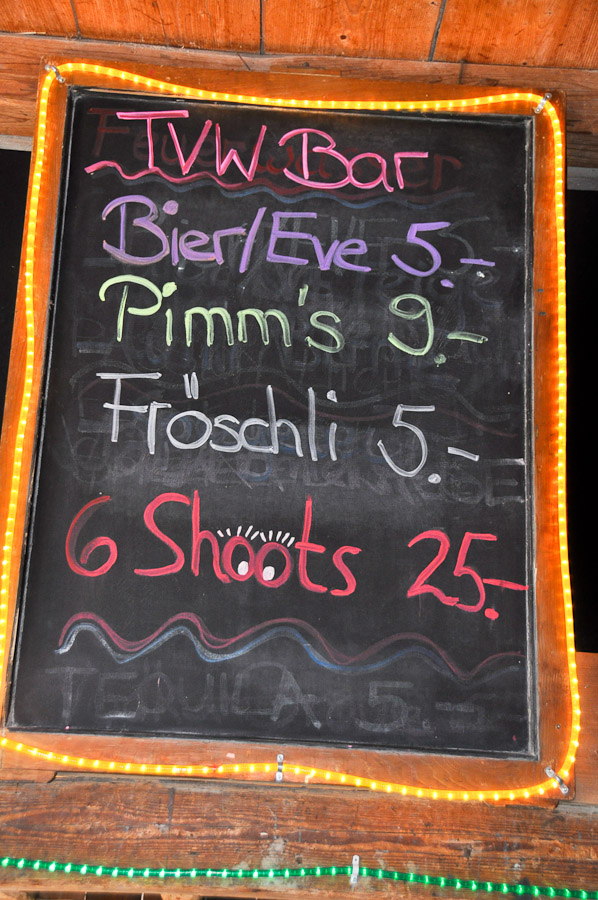 TVW Bar
Bier/Eve 5.-
Pimm's 9.-
Fröschli 5.-
6 Shoots 25.-
TEQUILA 5.-